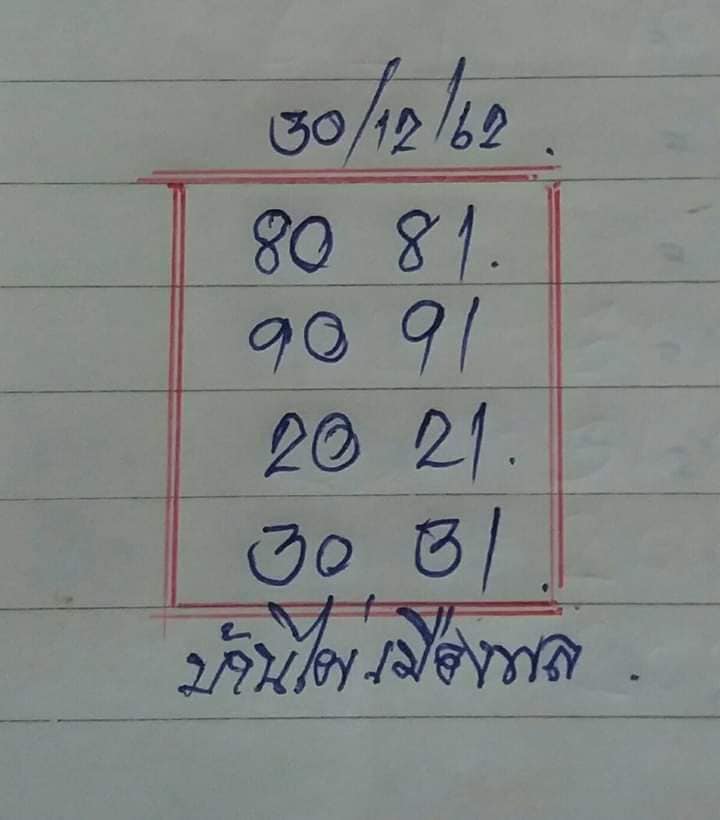 30/12/62.
80 81.
90 91
20 21.
30 31.
บ้านไผ่เมืองพล.